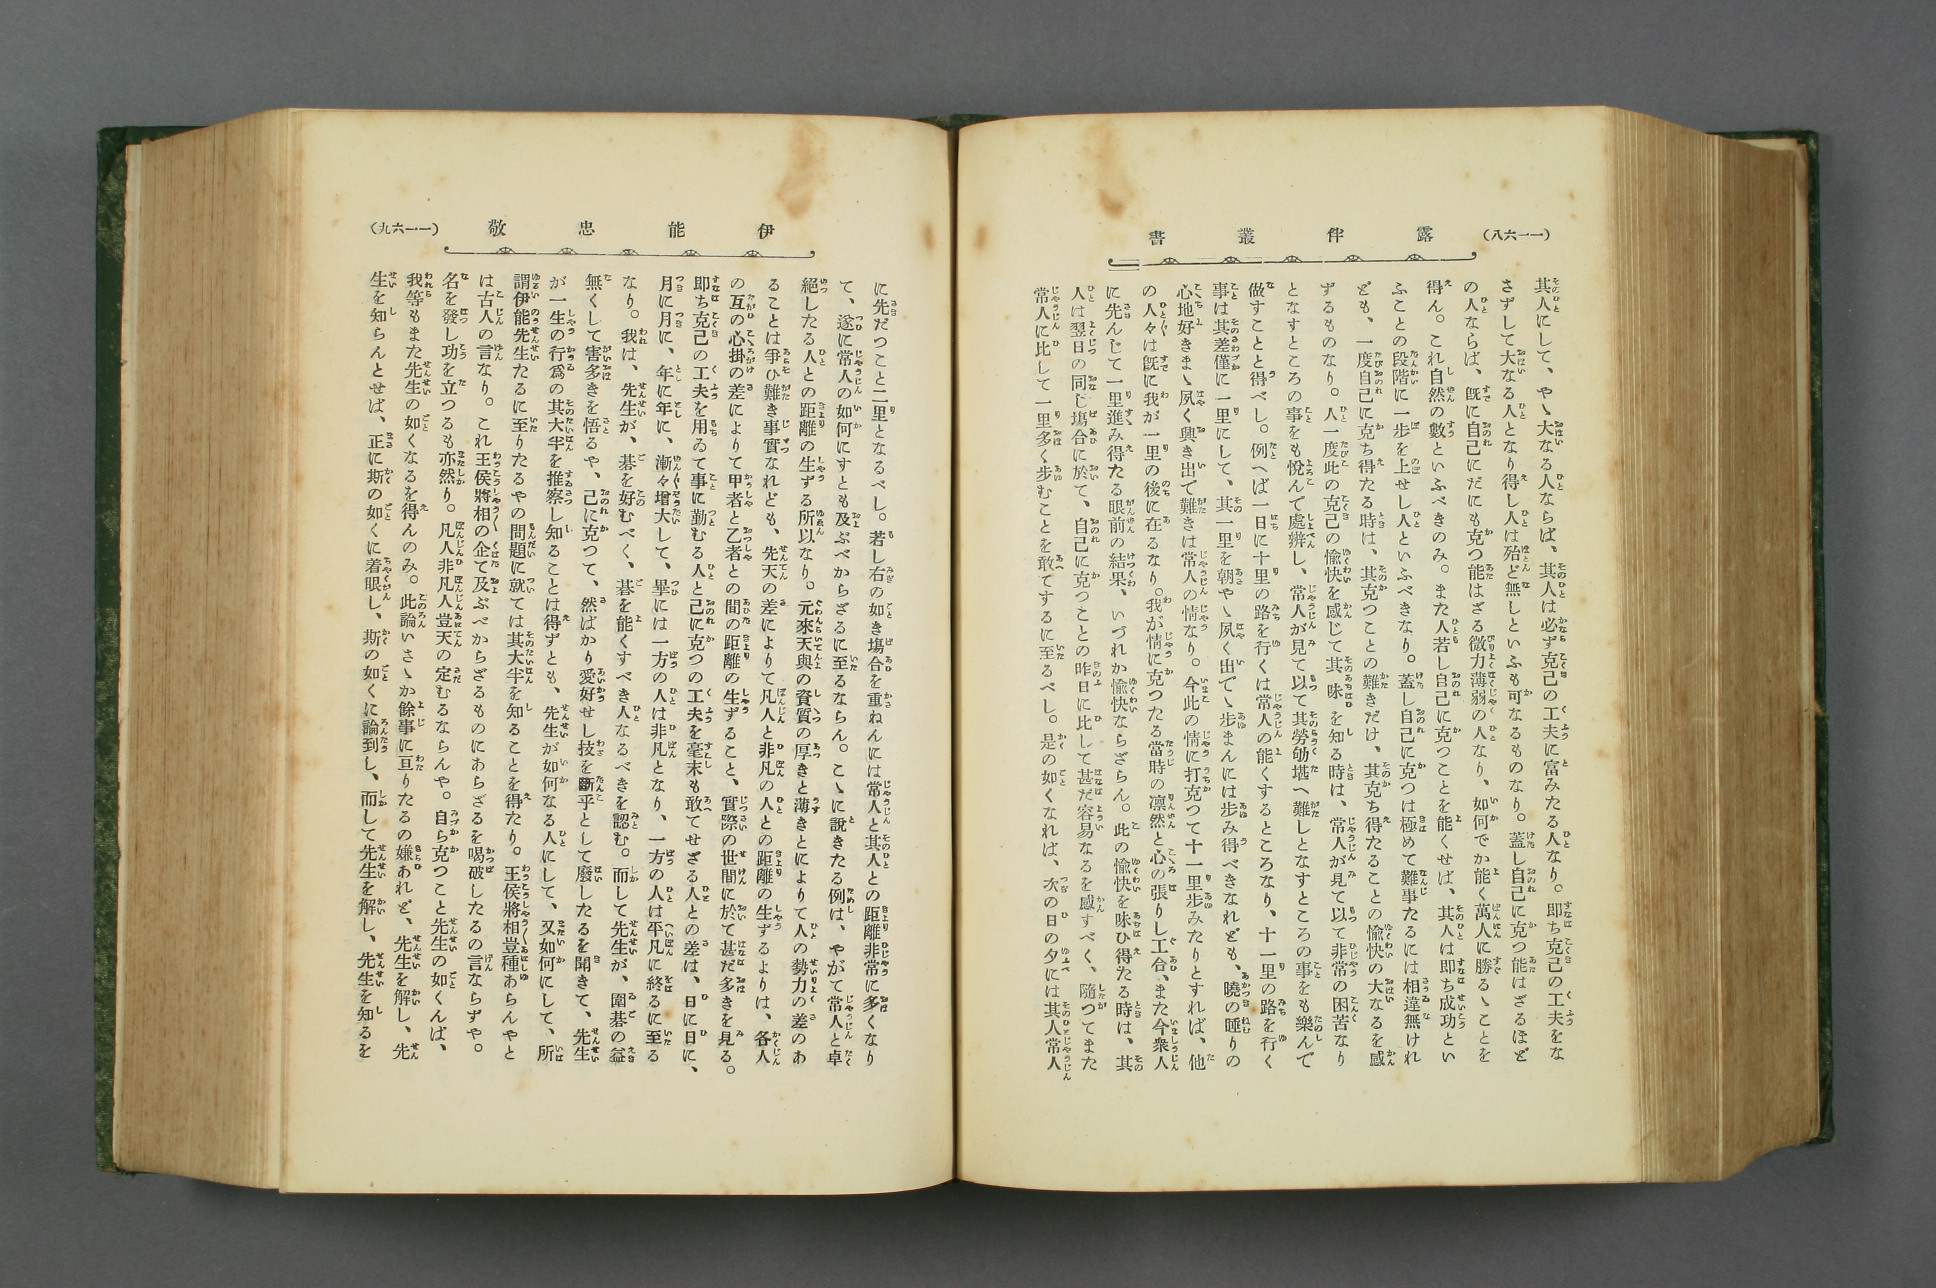 露伴叢書
(一一六八)
其人にして、やゝ大なる人ならば、其人は必ず克己の工夫に富みたる人なり。即ち克己の工夫をな
さずして大なる人となり得し人は殆ど無しといふも可なるものなり。蓋し自己に克つ能はざるほど
の人ならば、既に自己にだにも克つ能はざる微力薄弱の人なり、如何でか能く萬人に勝るゝことを
得ん。これ自然の數といふべきのみ。また人若し自己に克つことを能くせば、其人は即ち成功とい
ふことの段階に一歩を上せし人といふべきなり。蓋し自己に克つは極めて難事たるには相違無けれ
ども、一度自己に克ち得たる時は、其克つことの難きだけ、其克ち得たることの愉快の大なるを感
ずるものなり。人一度此の克己の愉快を感じて其味を知る時は、常人が見て以て非常の困苦なり
となすところの事をも悅んで處辨し、常人が見て以て其勞劬堪へ難しとなすところの事をも樂んで
做すことと得べし。例へば一日に十里の路を行くは常人の能くするところなり、十一里の路を行く
事は其差僅に一里にして、其一里を朝やゝ夙く出でゝ歩まんには歩み得べきなれども、曉の睡りの
心地好きまゝ夙く興き出で難きは常人の情なり。今此の情に打克つて十一里歩みたりとすれば、他
の人々は既に我が一里の後に在るなり。我が情に克つたる當時の凛然と心の張りし工合、また今衆人
に先んじて一里進み得たる眼前の結果、いづれか愉快ならざらん。此の愉快を味ひ得たる時は、其
人は翌日の同じ塲合に於て、自己に克つことの昨日に比して甚だ容易なるを感ずべく、隨つてまた
常人に比して一里多く歩むことを敢てするに至るべし。是の如くなれば、次の日の夕には其人常人
伊能忠敬
(一一六九)
に先だつこと二里となるべし。若し右の如き塲合を重ねんには常人と其人との距離非常に多くなり
て、遂に常人の如何にすとも及ぶべからざるに至るならん。こゝに說きたる例は、やがて常人と卓
絕したる人との距離の生ずる所以なり。元來天與の資質の厚きと薄きとによりて人の勢力の差のあ
ることは爭ひ難き事實なれども、先天の差によりて凡人と非凡の人との距離の生ずるよりは、各人
の互の心掛の差によりて甲者と乙者との間の距離の生ずること、實際の世間に於て甚だ多きを見る。
即ち克己の工夫を用ゐて事に勤むる人と己に克つの工夫を毫末も敢てせざる人との差は、日に日に、
月に月に、年に年に、漸々增大して、畢には一方の人は非凡となり、一方の人は平凡に終るに至る
なり。我は、先生が、碁を好むべく、碁を能くすべき人なるべきを認む。而して先生が、圍碁の益
無くして害多きを悟るや、己に克つて、然ばかり愛好せし技を斷乎として廢したるを聞きて、先生
が一生の行爲の其大半を推察し知ることは得ずとも、先生が如何なる人にして、又如何にして、所
謂伊能先生たるに至りたるやの問題に就ては其大半を知ることを得たり。王侯將相豈種あらんやと
は古人の言なり。これ王侯將相の企て及ぶべからざるものにあらざるを喝破したるの言ならずや。
名を發し功を立つるも亦然り。凡人非凡人豈天の定むるならんや。自ら克つこと先生の如くんば、
我等もまた先生の如くなるを得んのみ。此論いさゝか餘事に亘りたるの嫌あれど、先生を解し、先
生を知らんとせば、正に斯の如くに着眼し、斯の如くに論到し、而して先生を解し、先生を知るを